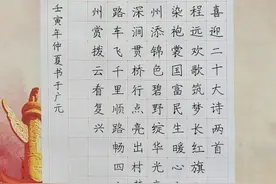 喜迎二十大诗两首
程远欢歌筑梦长红旗
染袍裳国富民生暖心
州添锦色碧野绽华光
深涧贯桥行点亮出村
路车飞千里顺路畅四
州赏拨云看复兴
壬寅年仲夏书于广元